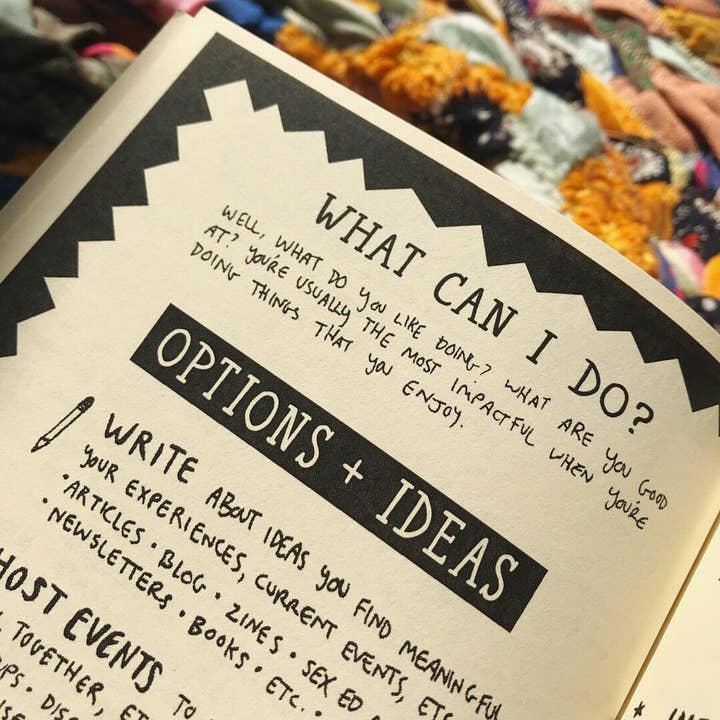 WHAT CAN I DO?
WELL, WHAT DO YOU LIKE DOING? WHAT ARE YOU GOOD
AT? YOU'RE USUALLY THE MOST IMPACTFUL WHEN YOU'RE
DOING THINGS THAT YOU ENJOY.
OPTIONS + IDEAS
WRITE ABOUT IDEAS YOU FIND MEANINGFUL
YOUR EXPERIENCES, CURRENT EVENTS, ETC
• ARTICLES • BLOG • ZINES • SEX ED
• NEWSLETTERS • BOOKS • ETC. •
HOST EVENTS TO
TOGETHER, ET